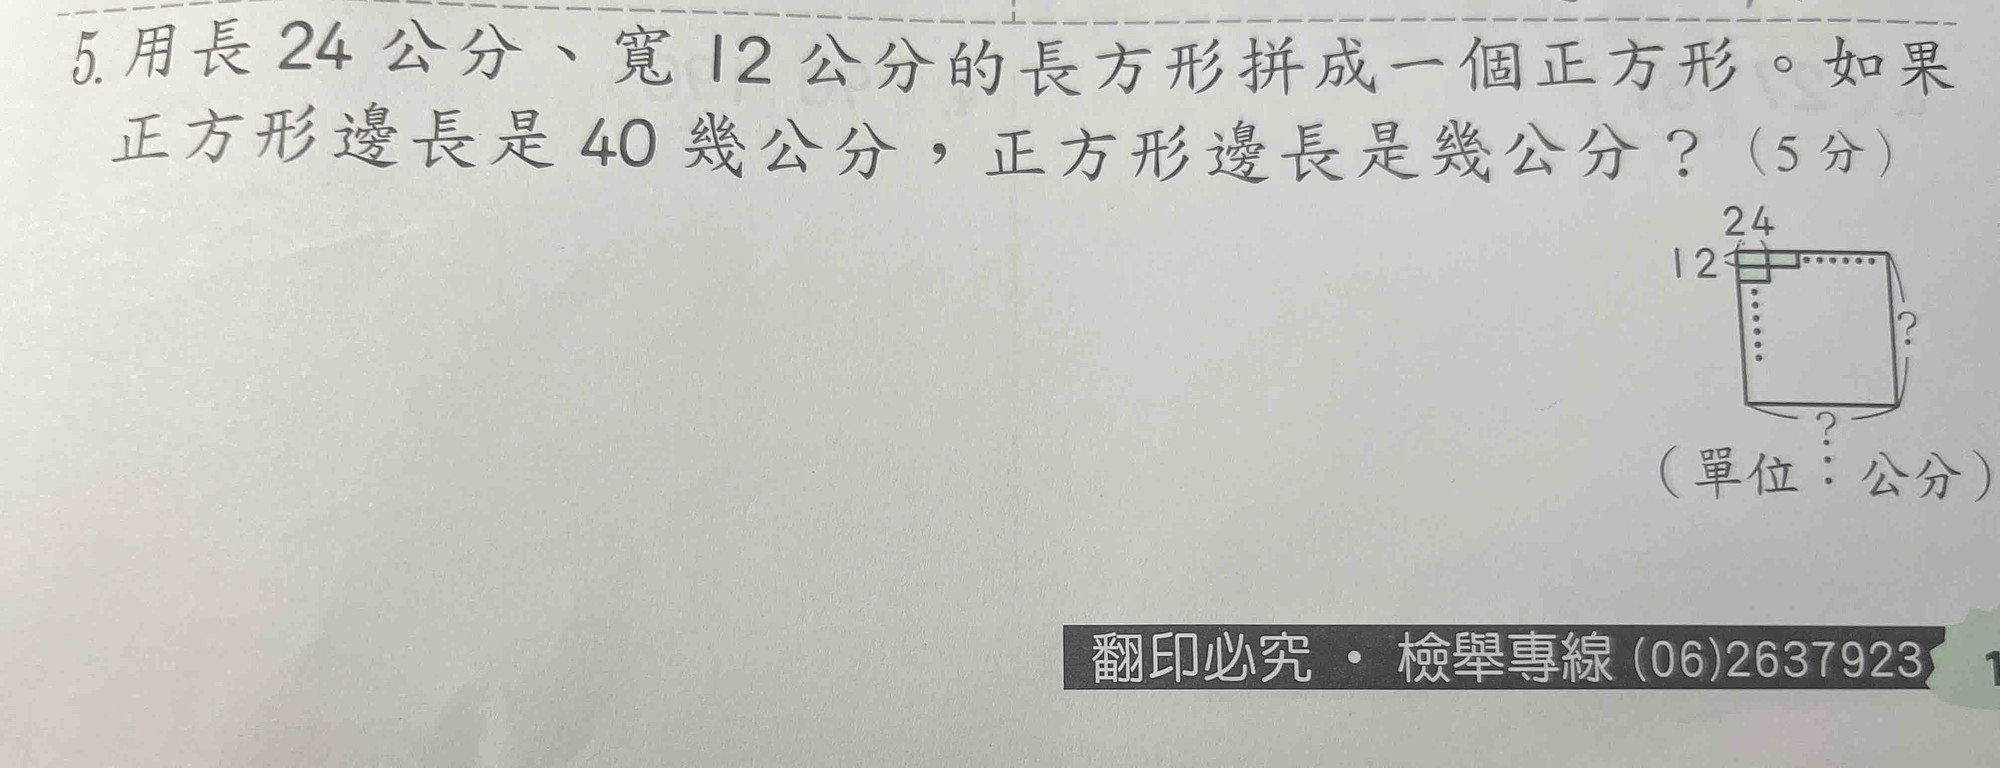 5. 用長 24 公分、寬 12 公分的長方形拼成一個正方形。如果
正方形邊長是 40 幾公分，正方形邊長是幾公分？（5 分）
24
12
?
?
（單位：公分）
翻印必究・檢舉專線 (06)2637923
1